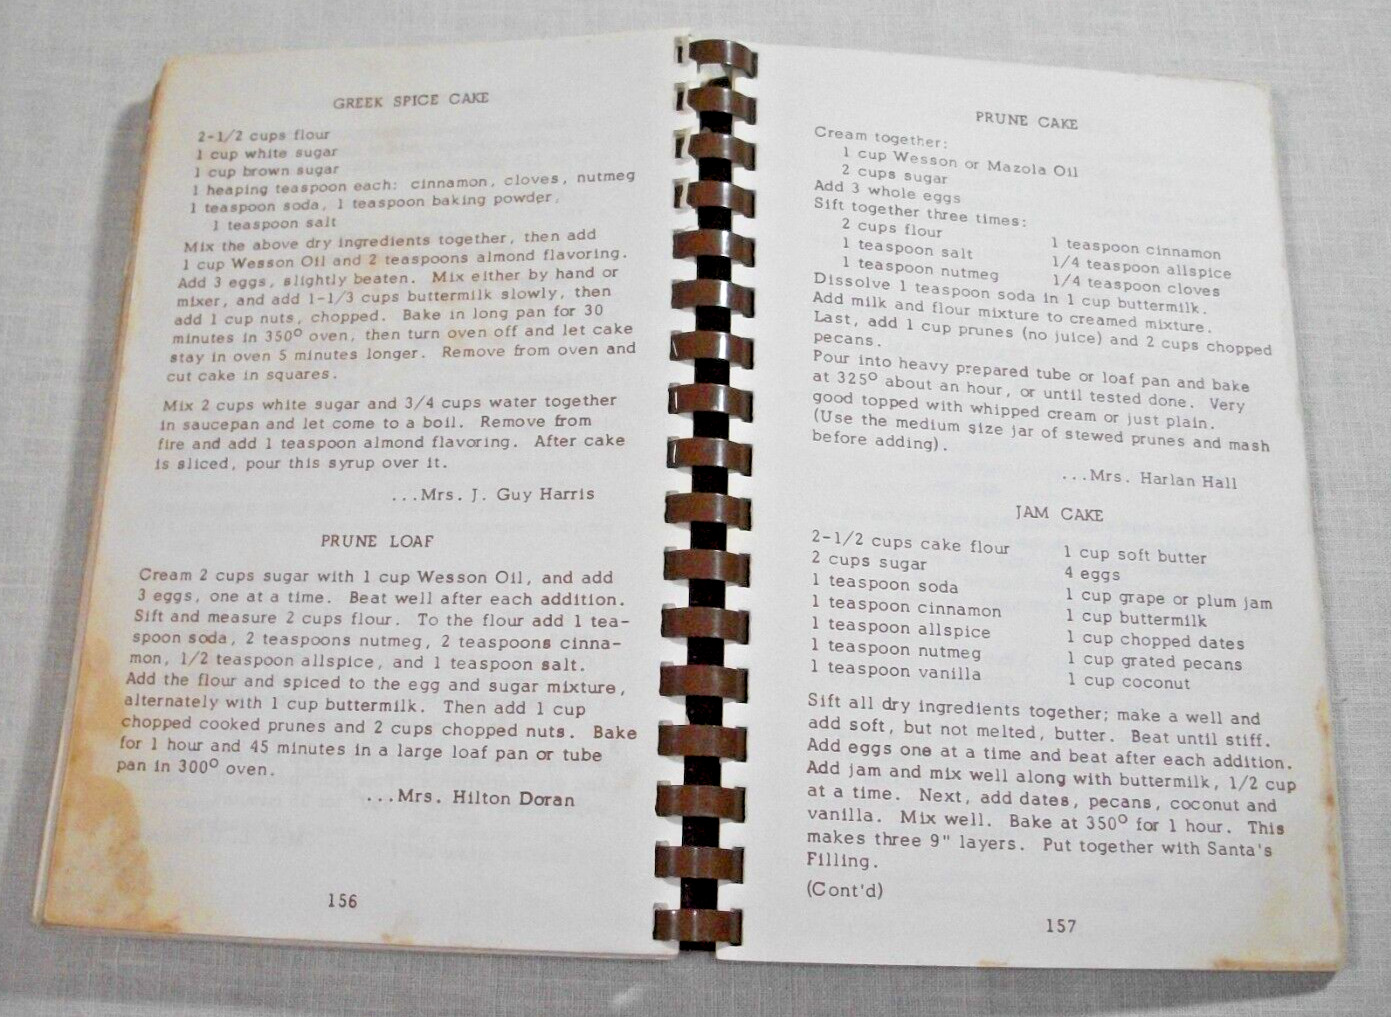 GREEK SPICE CAKE
2-1/2 cups flour
1 cup white sugar
1 cup brown sugar
1 heaping teaspoon each: cinnamon, cloves, nutmeg
1 teaspoon soda, 1 teaspoon baking powder,
1 teaspoon salt
Mix the above dry ingredients together, then add
1 cup Wesson Oil and 2 teaspoons almond flavoring.
Add 3 eggs, slightly beaten. Mix either by hand or
mixer, and add 1-1/3 cups buttermilk slowly, then
add 1 cup nuts, chopped. Bake in long pan for 30
minutes in 350° oven, then turn oven off and let cake
stay in oven 5 minutes longer. Remove from oven and
cut cake in squares.
Mix 2 cups white sugar and 3/4 cups water together
in saucepan and let come to a boil. Remove from
fire and add 1 teaspoon almond flavoring. After cake
is sliced, pour this syrup over it.
...Mrs. J. Guy Harris
PRUNE LOAF
Cream 2 cups sugar with 1 cup Wesson Oil, and add
3 eggs, one at a time. Beat well after each addition.
Sift and measure 2 cups flour. To the flour add 1 tea-
spoon soda, 2 teaspoons nutmeg, 2 teaspoons cinna-
mon, 1/2 teaspoon allspice, and 1 teaspoon salt.
Add the flour and spiced to the egg and sugar mixture,
alternately with 1 cup buttermilk. Then add 1 cup
chopped cooked prunes and 2 cups chopped nuts. Bake
for 1 hour and 45 minutes in a large loaf pan or tube
pan in 300° oven.
...Mrs. Hilton Doran
156
PRUNE CAKE
Cream together:
1 cup Wesson or Mazola Oil
2 cups sugar
Add 3 whole eggs
Sift together three times:
2 cups flour 1 teaspoon cinnamon
1 teaspoon salt 1/4 teaspoon allspice
1 teaspoon nutmeg 1/4 teaspoon cloves
Dissolve 1 teaspoon soda in 1 cup buttermilk.
Add milk and flour mixture to creamed mixture.
Last, add 1 cup prunes (no juice) and 2 cups chopped
pecans.
Pour into heavy prepared tube or loaf pan and bake
at 325° about an hour, or until tested done. Very
good topped with whipped cream or just plain.
(Use the medium size jar of stewed prunes and mash
before adding).
...Mrs. Harlan Hall
JAM CAKE
2-1/2 cups cake flour 1 cup soft butter
2 cups sugar 4 eggs
1 teaspoon soda 1 cup grape or plum jam
1 teaspoon cinnamon 1 cup buttermilk
1 teaspoon allspice 1 cup chopped dates
1 teaspoon nutmeg 1 cup grated pecans
1 teaspoon vanilla 1 cup coconut
Sift all dry ingredients together; make a well and
add soft, but not melted, butter. Beat until stiff.
Add eggs one at a time and beat after each addition.
Add jam and mix well along with buttermilk, 1/2 cup
at a time. Next, add dates, pecans, coconut and
vanilla. Mix well. Bake at 350° for 1 hour. This
makes three 9" layers. Put together with Santa's
Filling.
(Cont'd)
157